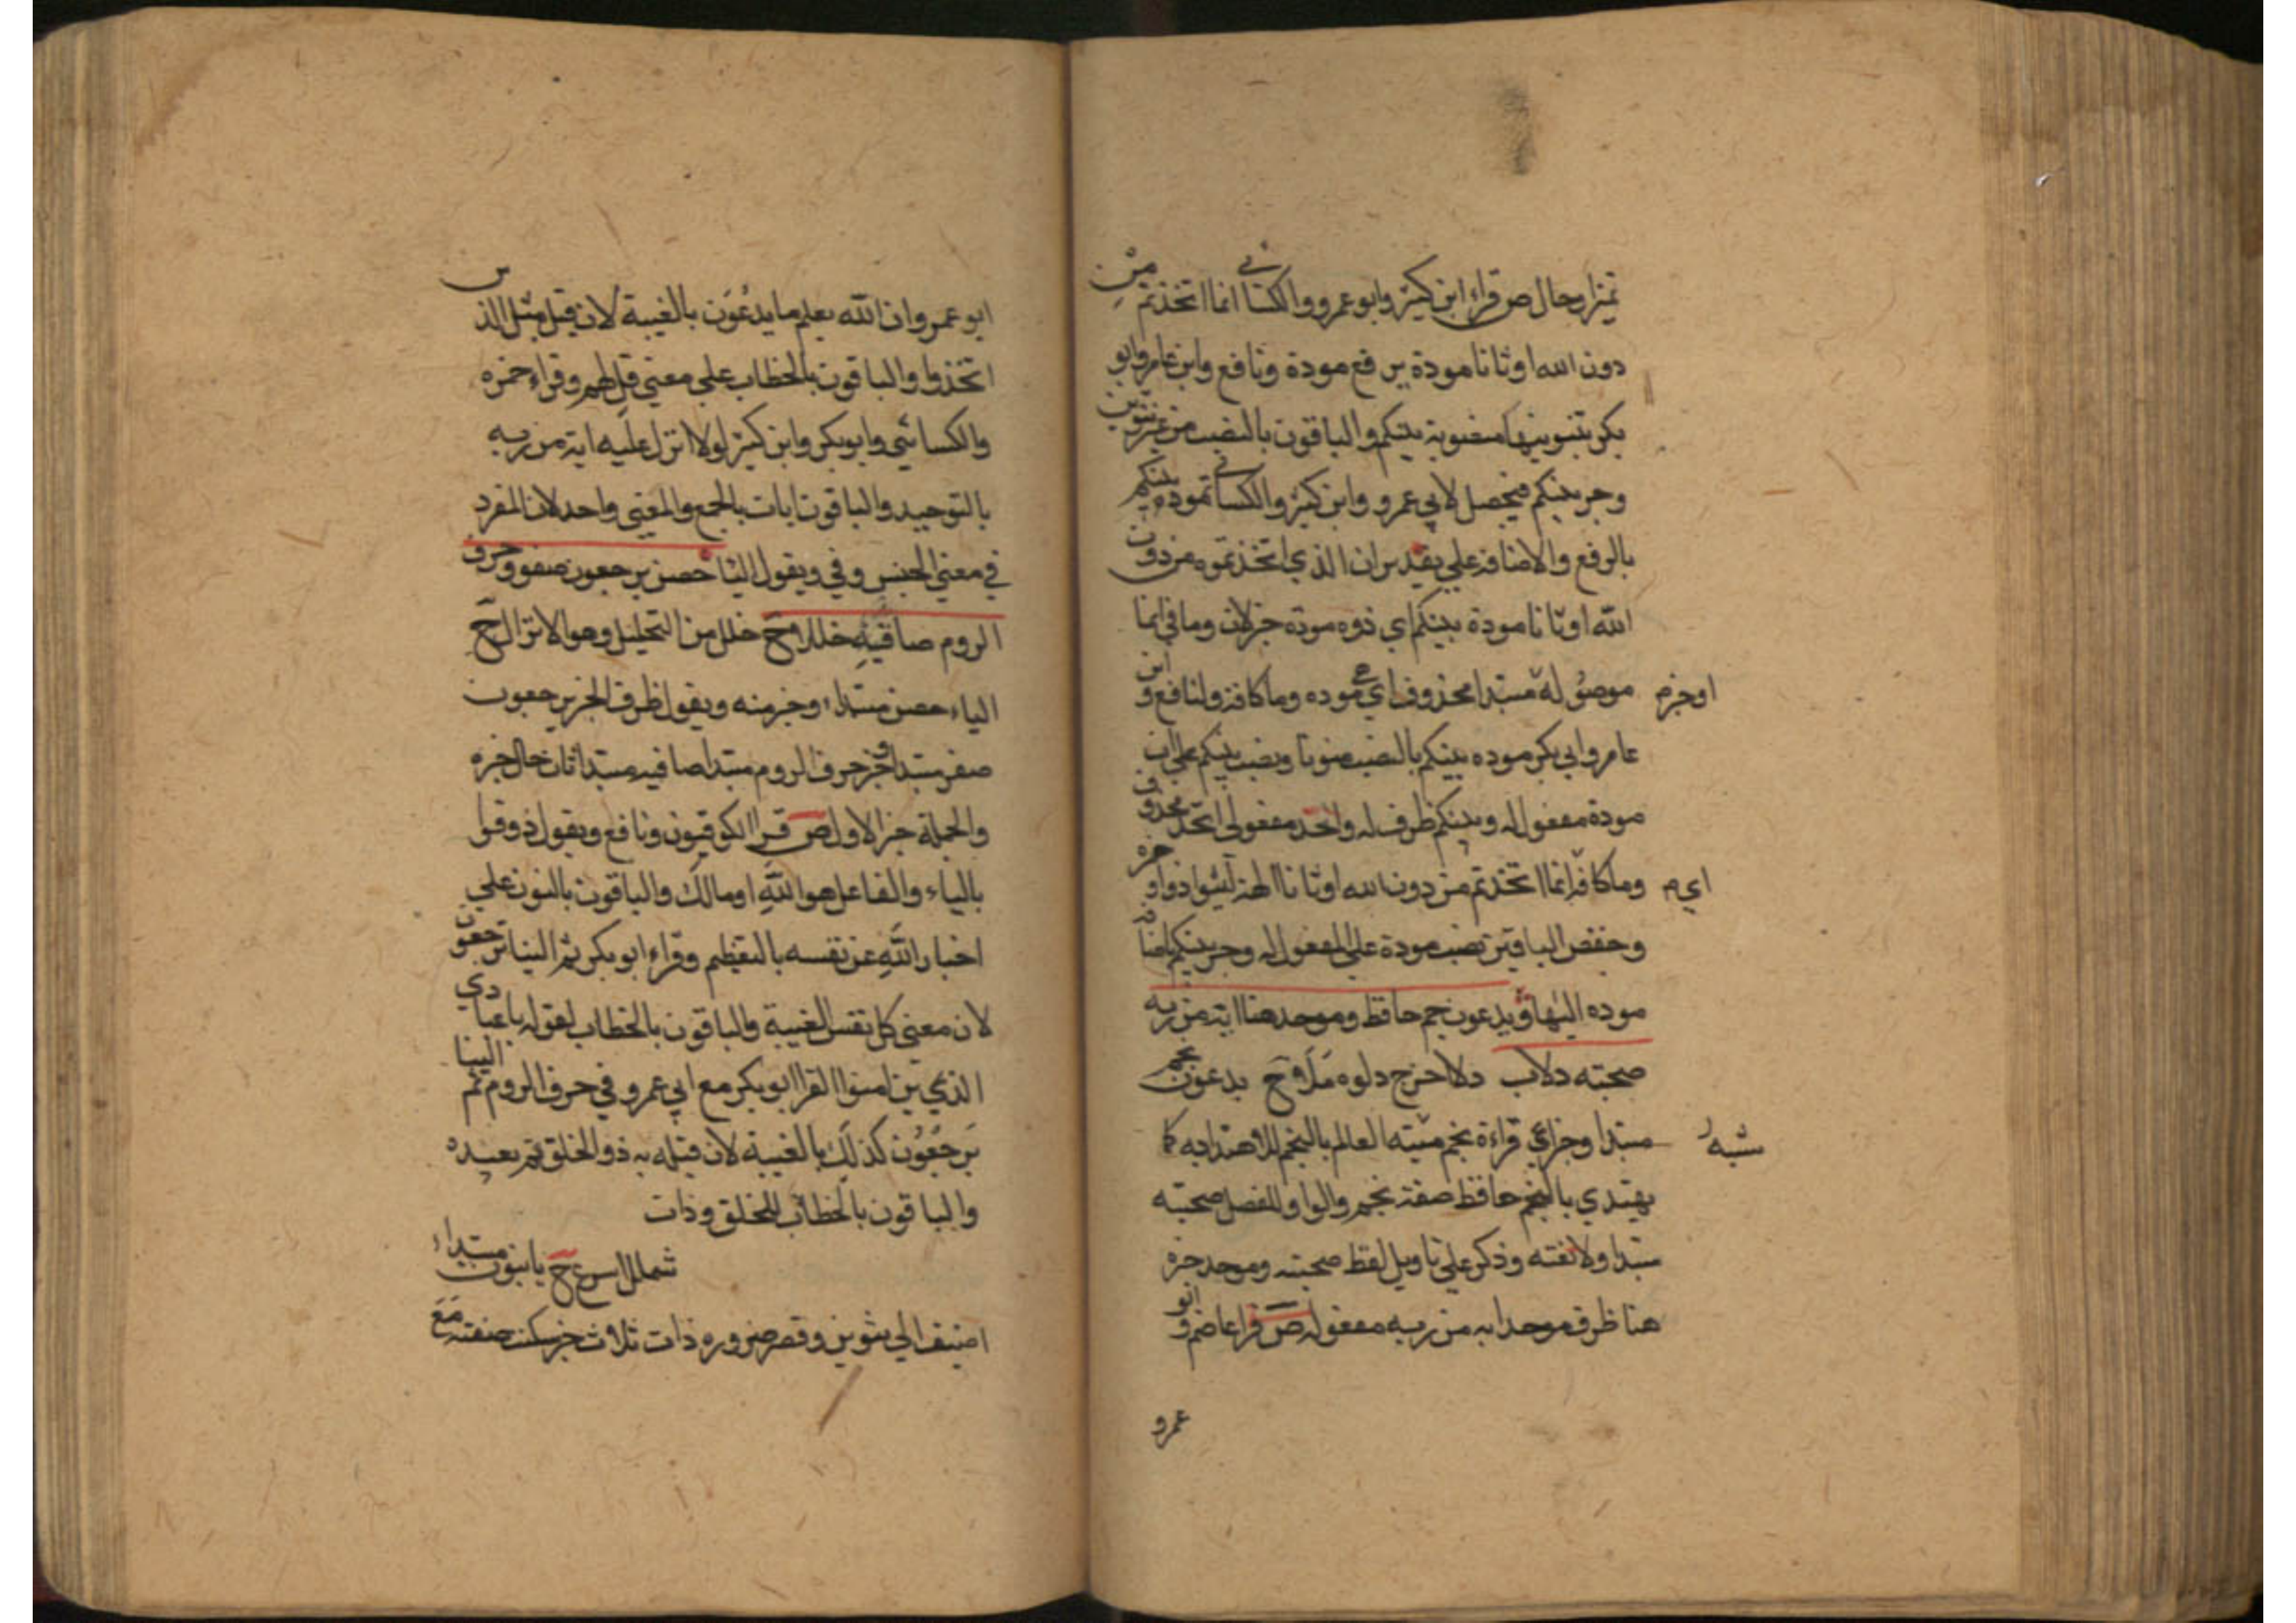 تميزا وحال ص قراء ابن كثير وابو عمرو والكسائي انما اتخذتم من
دون الله اوثانا مودة برفع مودة ونافع وابن عامر وابو
بكر بتنوينها منصوبة بينكم والباقون بالنصب من غير تنوين
وجر بينكم فيحصل لابي عمرو وابن كثير والكسائي مودة بينكم
بالرفع والاضافة علي تقدير ان الذي اتخذتموه من دون
الله اوثانا مودة بينكم اي ذوه مودة خبر لان وما في انما
موصولة مبتدا محذوف اي موده وما كافة ولنافع و ابن
اوخبر م
عامر وابي بكر موده بينكم بالنصب منونا ونصب بينكم علي ان
مودة مفعول له وبينكم ظرف له واحد مفعولي اتخذ محذوف
وما كافة انما اتخذتم من دون الله اوثانا الهة
اي م
وحفص الباقين نصب مودة علي المفعول له وجر بينكم
موده اليها ويدعون نجم حافظ وموحد هنا اية من ربه
صحبته دلاب دلا اخرج دلوه ملا ح يدعون نجم
مبتدا وخبر اي قراءة نجم شبه العالم بالنجم للاهتداء به كما
شبه
يهتدي بالنجم حافظ صفة نجم والواو للفصل صحبته
مبتدا ودلا نفته وذكر علي تاويل لفظ صحبته وموحد خبره
هنا ظرف موحد اية من ربه مفعوله ص قرا عاصم و ابو
عمرو
ابو عمرو ان الله يعلم ما يدعون بالغيبة لان قبل مثل الذين
اتخذوا والباقون بالخطاب علي معني قل لهم وقراء حمزه
والكسائي وابو بكر وابن كثير لولا انزل عليه اية من ربه
بالتوحيد والباقون ايات بالجمع والمعني واحد لان المفرد
في معني الجنس وفي ويقول الياء حصن يرجعون صفو وحرف
الروم صافيه حللا ح حلل من التحليل وهو الانزال ح
الياء حصن مبتداء وخبر منه ويقول ظرف الخبر يرجعون
صفو مبتدا وخبر حرف الروم مبتدا صافيه مبتدا ثان حلل خبره
والجملة خبر الاول ص قرا الكوفيون ونافع ويقول ذوقوا
بالياء والفاعل هو الله او مالك والباقون بالنون علي
اخبار الله عن نفسه بالتعظيم وقراء ابو بكر ثم الينا ترجعون
لان معني كل نفس الغيبة والباقون بالخطاب لقوله يا عبادي
الذين امنوا اقرا ابو بكر مع ابي عمرو في حرف الروم ثم الينا
يرجعون كذلك بالغيبة لان قبله يبدؤ الخلق ثم يعيده
والباقون بالخطاب للخلق وذات
شملل اسرع ح با نبون مبتداء
اضيف الي تنوين وقصر ضروره ذات ثلاث خبر سكنت صفته مع